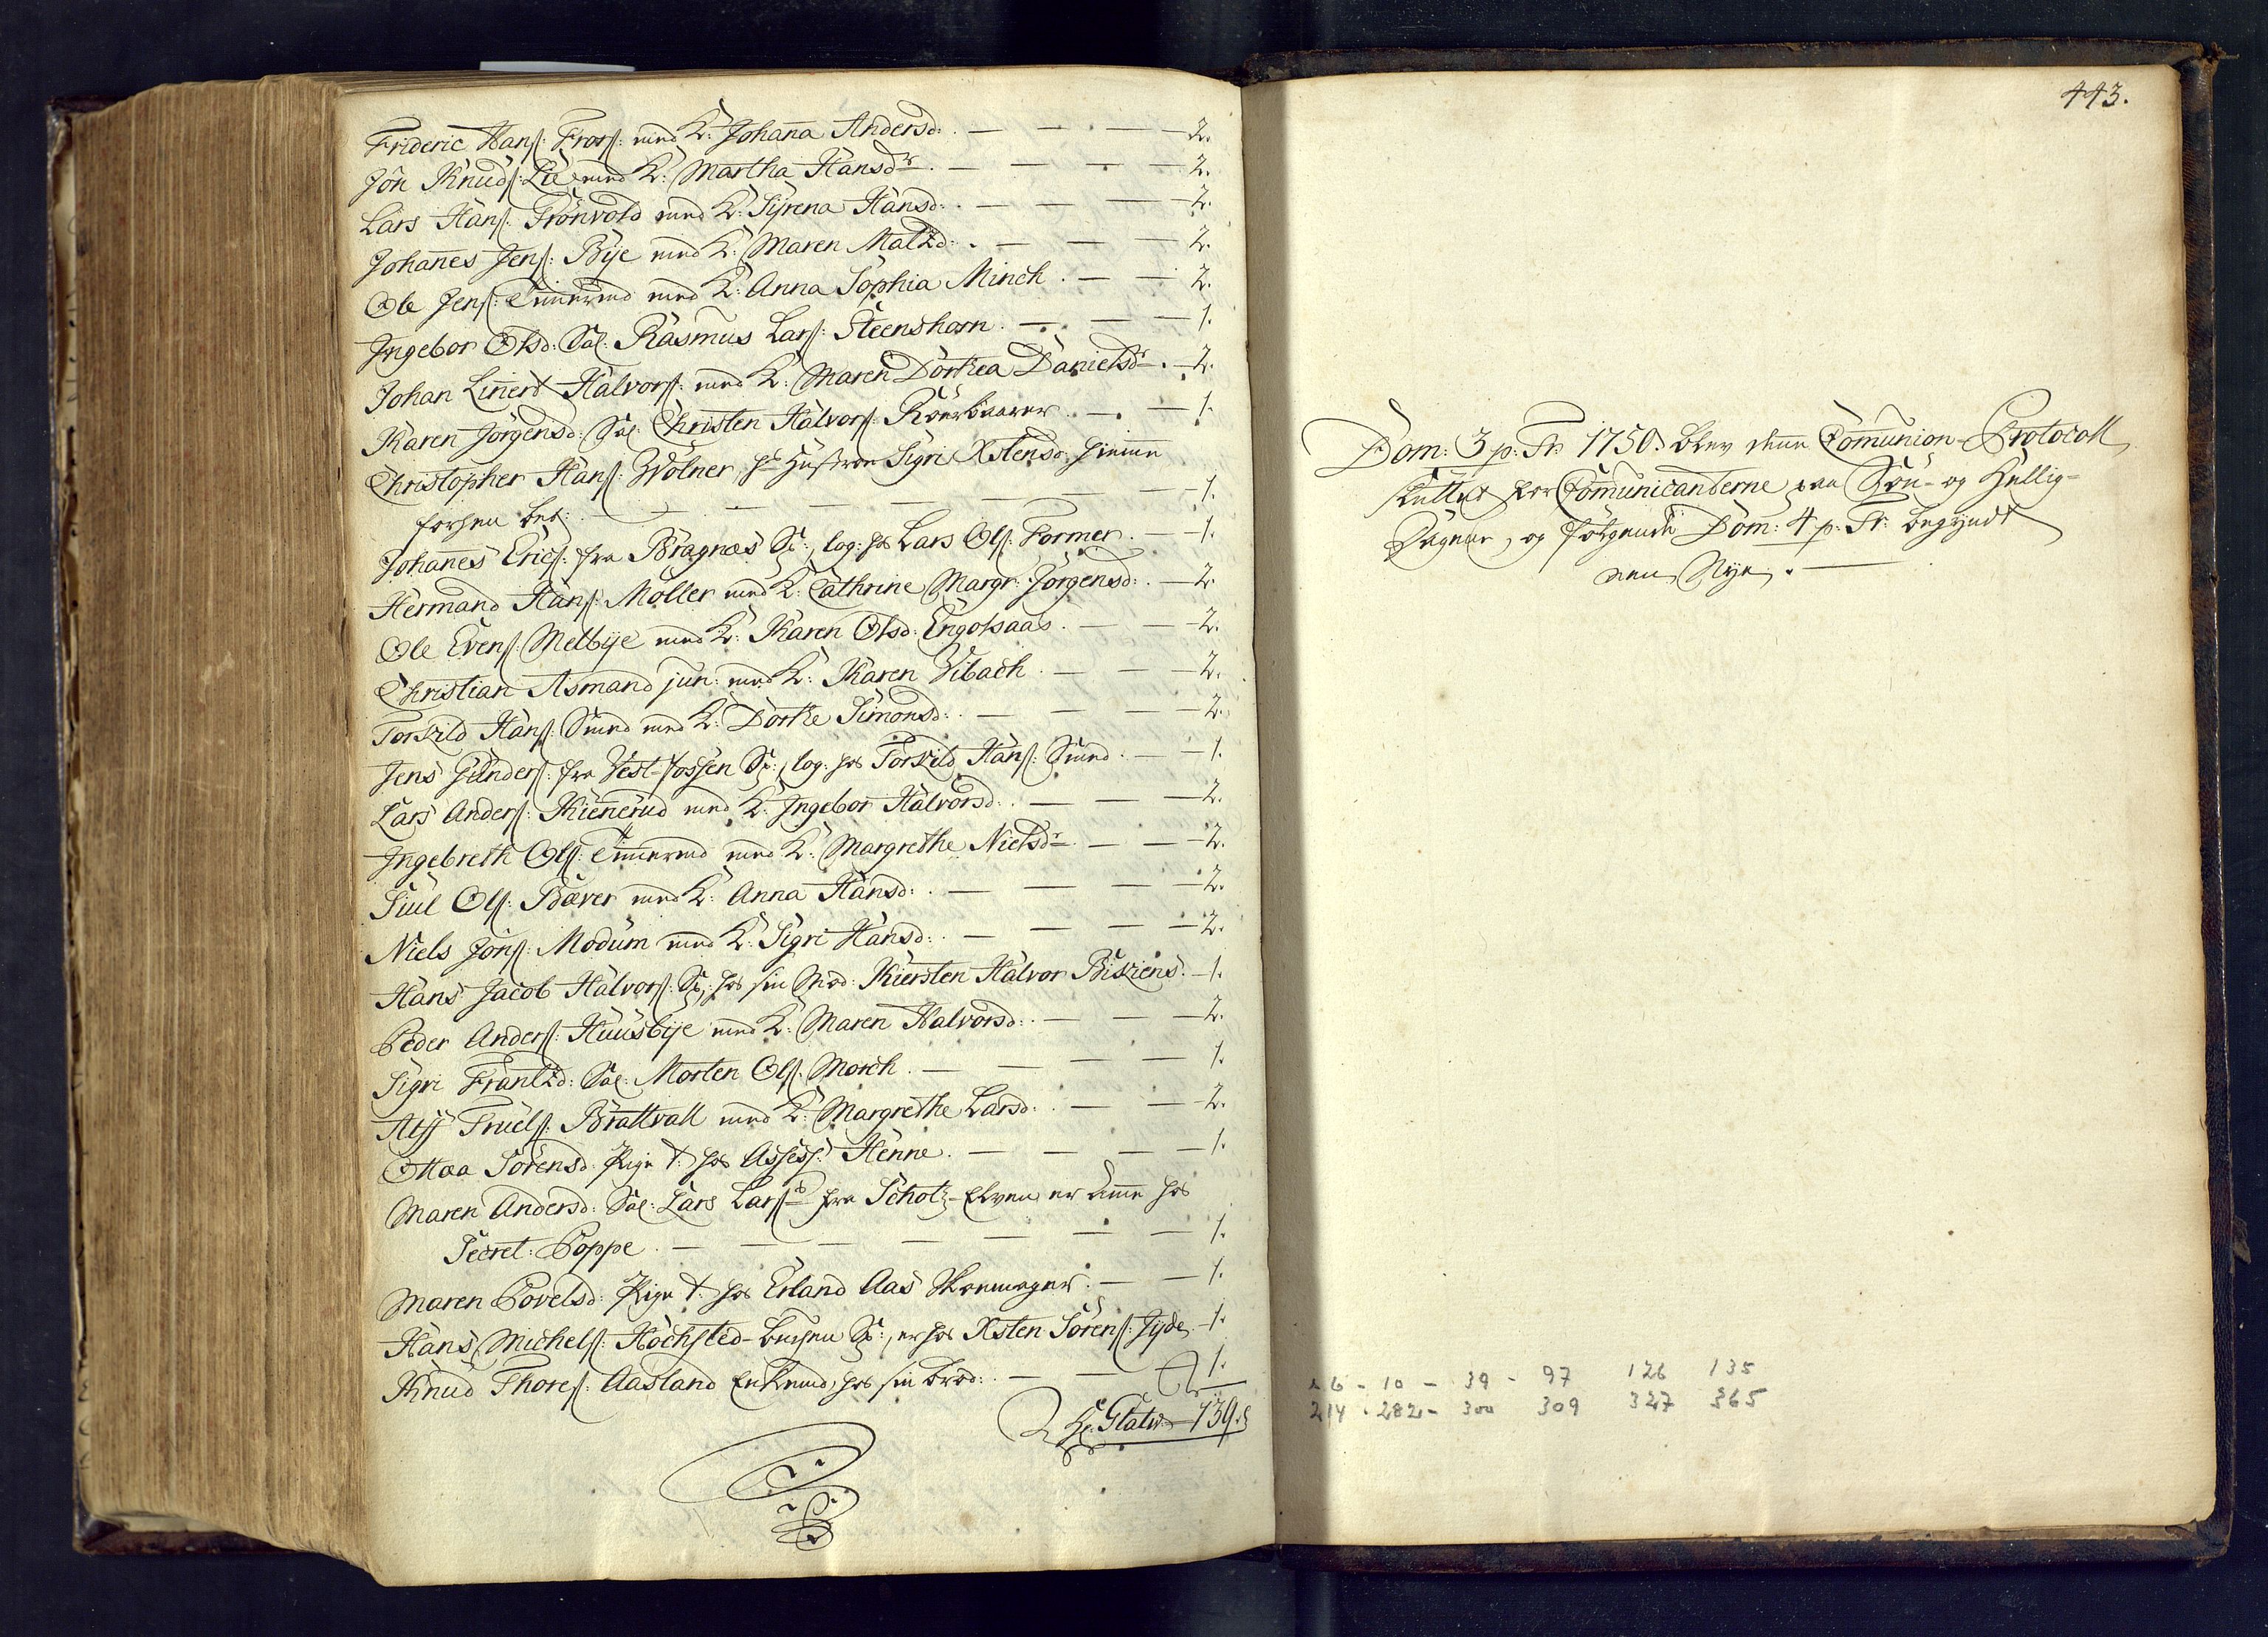 Frideric Hanſ: Froſ: med K: Johanna Andersd: . — — . — 2.
Jon Knudſ: Lie med K: Martha Hansdr. — — . — 2.
Lars Hanſ: Frönvold med K: Syrena Hansd: . — — — 2.
Johanes Jenſ: Bye med K: Maren Matzd: . — — — 2.
Ole Jenſ: med K: Anna Sophia Minch . — — 2.
Ingebor Olsd: Sal: Rasmus Larſ: Steenshorn . — — — 1.
Johan Linert Halvorſ: med K: Maren Dorthea Danielsdr . — 2.
Karen Jörgensd: Sal: Christen Halvorſ: . — — 1.
Christopher Hanſ: Wolner, hs Hustroe Sigri Xstensd: hiemme
forhen bet: . — — — — — — 1.
Johanes Ericſ: fra Bragnæs S:, log: hos Lars Olſ: Former . — 1.
Hermand Hanſ: Möller med K: Cathrine Margr: Jörgensd: . — 2.
Ole Evenſ: Melbye med K: Karen Olsd: Engolsaas . — — 2.
Christian Asmand jun: med K: Karen Vibach . — — — 2.
Torkild Hanſ: Smed med K: Dorthe Simonsd: . — — — 2.
Jens Gunderſ: fra Vest-fossen S:, log: hos Torkild Hanſ: Smed . — 1.
Lars Anderſ: Kienerud med K: Ingebor Halvorsd: . — — — 2.
Ingebreth Olſ: med K: Margrethe Nielsdr . — — 2.
Siul Olſ: Bæver med K: Anna Hansd: . — — — 2.
Niels Jonſ: Modum med K: Sigri Hansd: . — — — 2.
Hans Jacob Halvorſ: S:, hos sin Mod: Kiersten Halvor Biskiens . — 1.
Peder Anderſ: Huusbye med K: Maren Halvorsd: . — — 2.
Sigri Frantzd: Sal: Morten Olſ: Morch . — — — — 1.
Alff Truelſ: Brattvall med K: Margrethe Larsd: . — — 2.
Ottaa Sörensd: Pige t: hos Assess: Henne . — — — — 1.
Maren Andersd: Sal: Lars Larſ: fra Schotz-Elven er Amme hos
Secret: Poppe . — — — — — — 1.
Maren Povelsd: Pige t: hos Erland Aas Skoemager . — — 1.
Hans Michelſ: Höchsted- S:, er hos Xsten Sörenſ: Jyde . — 1.
Knud Thoreſ: Aasland Enkemd, hos sin Brod: . — — 1.
139.
443.
Dom: 3 p: Tr: 1750. blev denne Communion-Protocoll
sluttet for Communicanterne paa Søn- og Hellig-
Dagene, og følgende Dom: 4 p: Tr: begyndt
den Nye . —
10 - 39 - 97 126 135
214 - 282 - 300 309 327 365